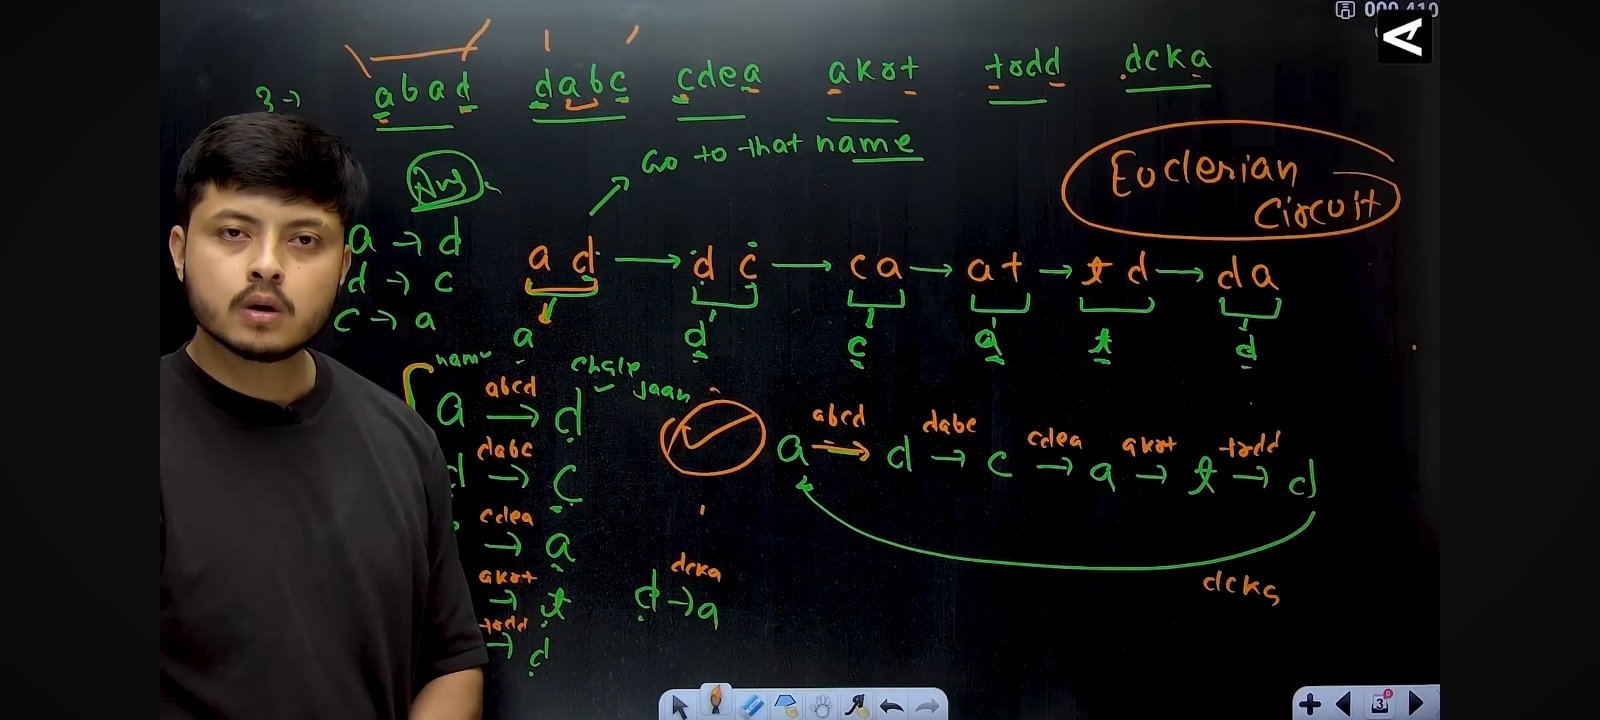 000410
3→ abad dabc cdea akot todd dcka
Go to that name
Ans
Euclerian
Circuit
a → d
d → c
c → a
a d → d c → c a → a t → t d → d a
a d c a t d
name chale jaan
a abcd → d
d dabc → c
cdea → a
akot → t
todd → d
d dcka → a
a abcd → d dabc → c cdea → a akot → t todd → d
dcka
3
0